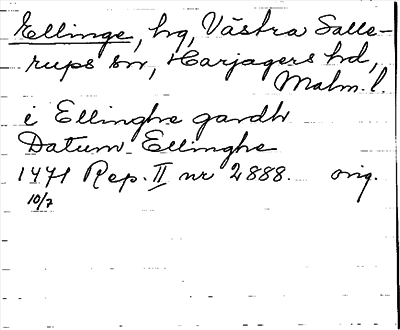 Ellinge, hg, Västra Salle-
rups sn, Harjagers hd,
Malm. l.
i Ellinghe gardh
Datum Ellinghe
1471 Rep. II nr 2888. orig.
10/7